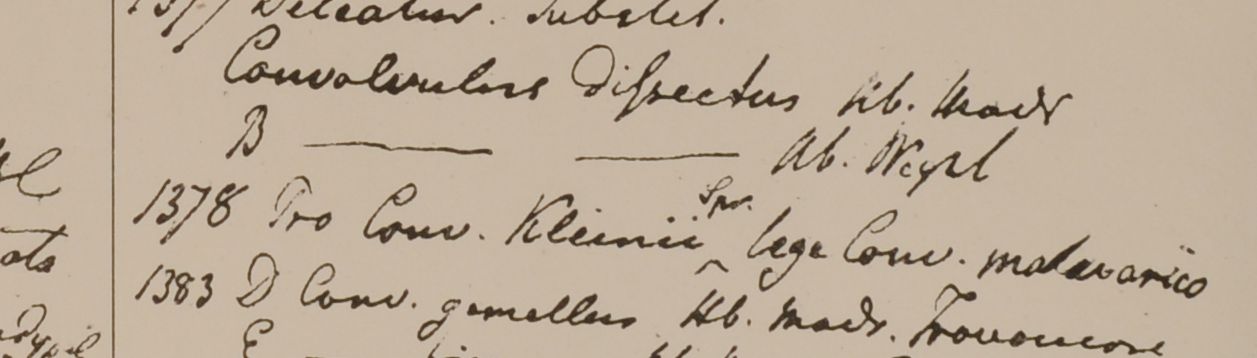 1377 Deleatur. Substit.
Convolvulus dissectus Hb. Madr
B — — Hb. Heyn
1378 Pro Conv. Kleinii Spr. lege Conv. malavarico
1383 D Conv. gemellus Hb. Madr. Travancore
E